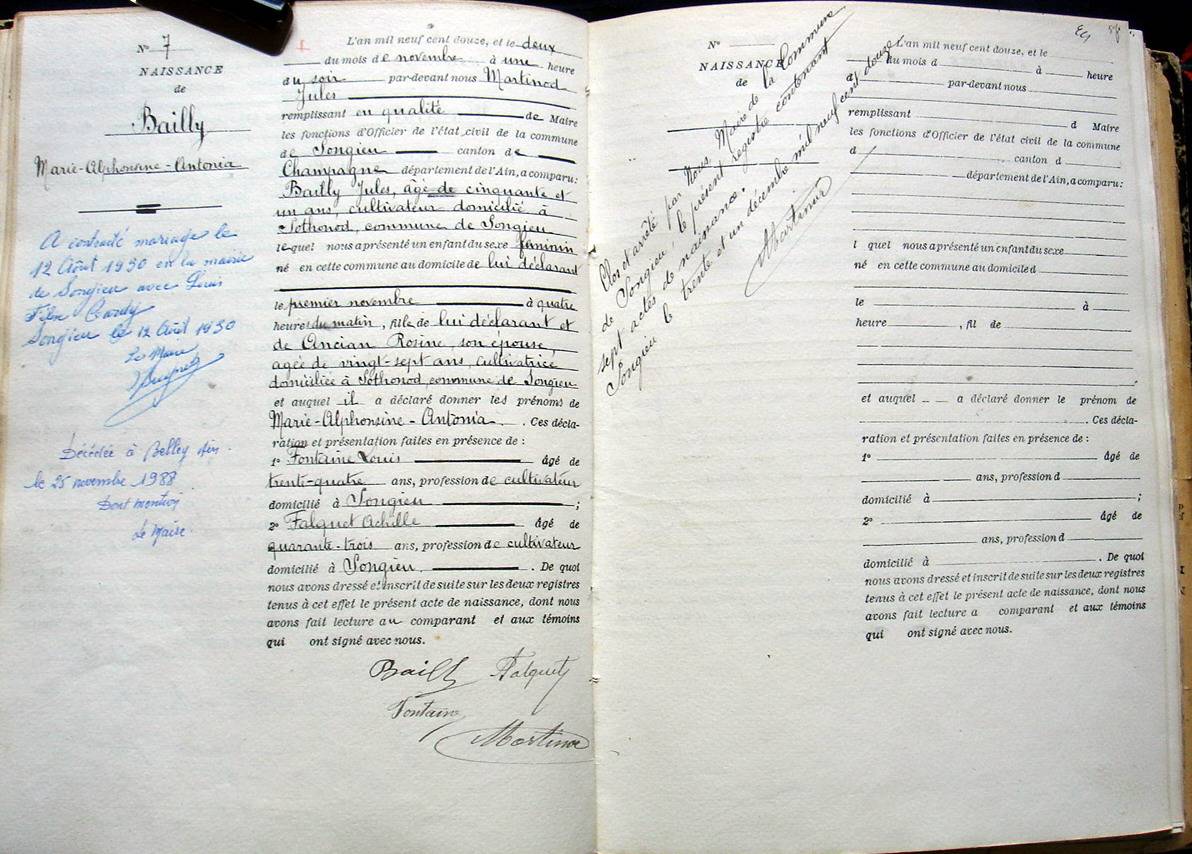 N° 7
NAISSANCE
de
Bailly
Marie-Alphonsine-Antonia
A contracté mariage le
12 Août 1930 en la mairie
de Songieu avec Louis
Songieu le 12 Août 1930
Le Maire
Décédée à Belley Ain
le 25 novembre 1988
Dont mention
Le Maire
L'an mil neuf cent douze, et le deux
du mois de novembre à une heure
du soir par-devant nous Martinod
Jules
remplissant en qualité de Maire
les fonctions d'Officier de l'état civil de la commune
de Songieu canton de
Champagne département de l'Ain, a comparu:
Bailly Jules, âgé de cinquante et
un ans, cultivateur domicilié à
Sothonod, commune de Songieu
lequel nous a présenté un enfant du sexe féminin
né en cette commune au domicile de lui déclarant
le premier novembre à quatre
heures du matin, fille de lui déclarant et
de Ancian Rosine, son épouse
agée de vingt-sept ans, cultivatrice
domiciliée à Sothonod, commune de Songieu
et auquel il a déclaré donner les prénoms de
Marie-Alphonsine-Antonia. Ces décla-
ration et présentation faites en présence de :
1° Fontaine Louis âgé de
trente-quatre ans, profession de cultivateur
domicilié à Songieu ;
2° Falquet Achille âgé de
quarante-trois ans, profession de cultivateur
domicilié à Songieu. De quoi
nous avons dressé et inscrit de suite sur les deux registres
tenus à cet effet le présent acte de naissance, dont nous
avons fait lecture au comparant et aux témoins
qui ont signé avec nous.
Bailly Falquet
Fontaine
Martinod
N°
NAISSANCE
de
Clos et arrêté par Nous, Maire de la Commune
de Songieu le présent registre contenant
sept actes de naissance.
Songieu le trente et un décembre mil neuf cent douze
Martinod
L'an mil neuf cent douze, et le
du mois d à heure
d par-devant nous
remplissant d Maire
les fonctions d'Officier de l'état civil de la commune
d canton d
département de l'Ain, a comparu:
l quel nous a présenté un enfant du sexe
né en cette commune au domicile d
le à
heure , fil de
et auquel a déclaré donner le prénom de
. Ces décla-
ration et présentation faites en présence de :
1° âgé de
ans, profession d
domicilié à ;
2° âgé de
ans, profession d
domicilié à . De quoi
nous avons dressé et inscrit de suite sur les deux registres
tenus à cet effet le présent acte de naissance, dont nous
avons fait lecture a comparant et aux témoins
qui ont signé avec nous.